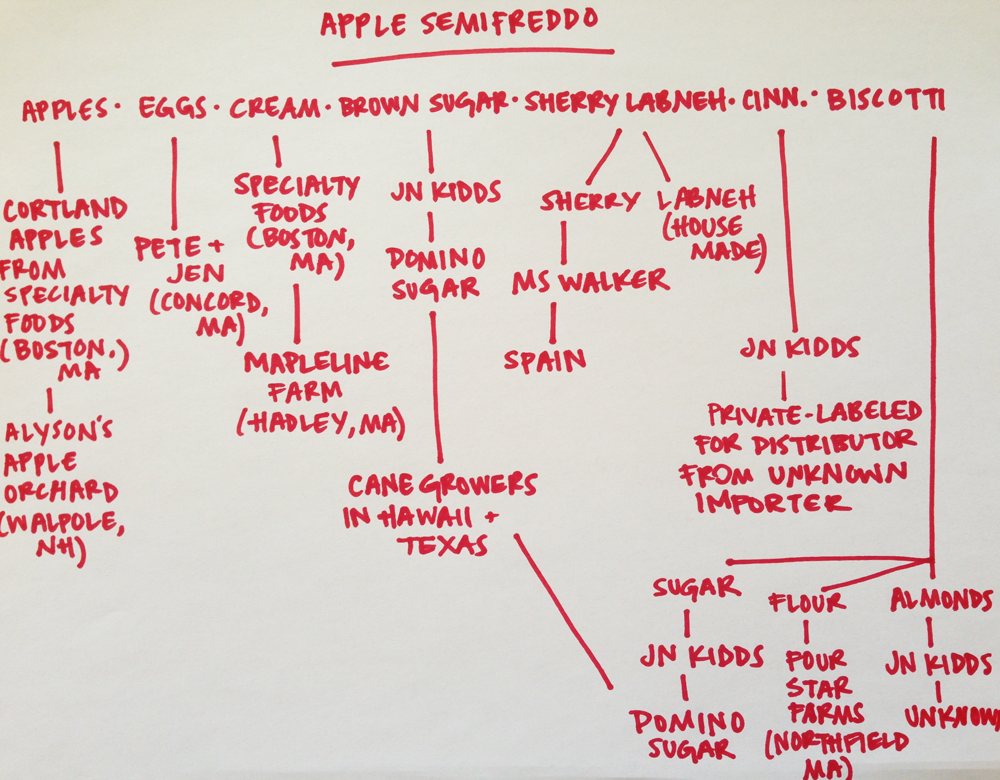 APPLE SEMIFREDDO
APPLES · EGGS · CREAM · BROWN SUGAR · SHERRY LABNEH · CINN. · BISCOTTI
CORTLAND
APPLES
FROM
SPECIALTY
FOODS
(BOSTON.)
MA
ALYSON'S
APPLE
ORCHARD
(WALPOLE,
NH)
PETE +
JEN
(CONCORD,
MA)
SPECIALTY
FOODS
(BOSTON,
MA)
MAPLELINE
FARM
(HADLEY, MA)
JN KIDDS
DOMINO
SUGAR
CANE GROWERS
IN HAWAII +
TEXAS
SHERRY
MS WALKER
SPAIN
LABNEH
(HOUSE
MADE)
JN KIDDS
PRIVATE-LABELED
FOR DISTRIBUTOR
FROM UNKNOWN
IMPORTER
SUGAR
JN KIDDS
DOMINO
SUGAR
FLOUR
FOUR
STAR
FARMS
(NORTHFIELD
MA)
ALMONDS
JN KIDDS
UNKNOWN